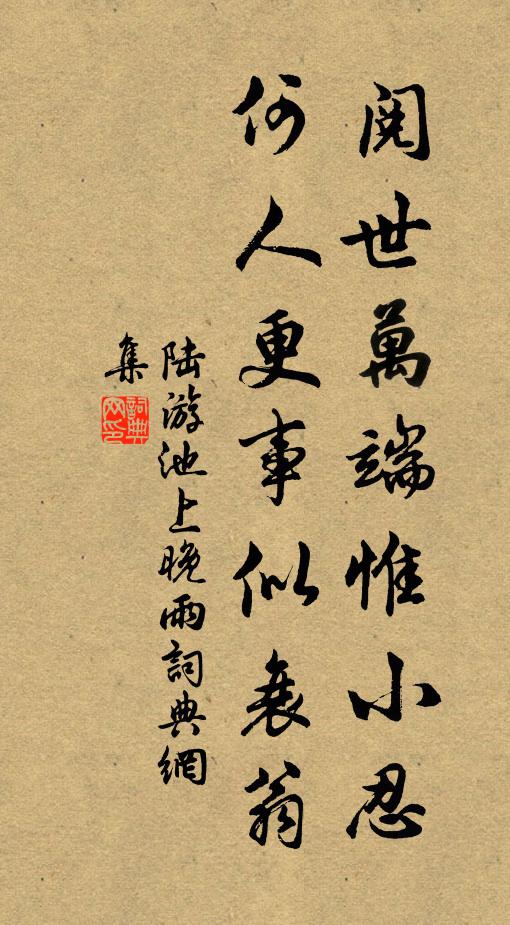 閱世萬端惟小忍
何人更事似衰翁
陆游池上晚雨詞典網
集
詞典網印